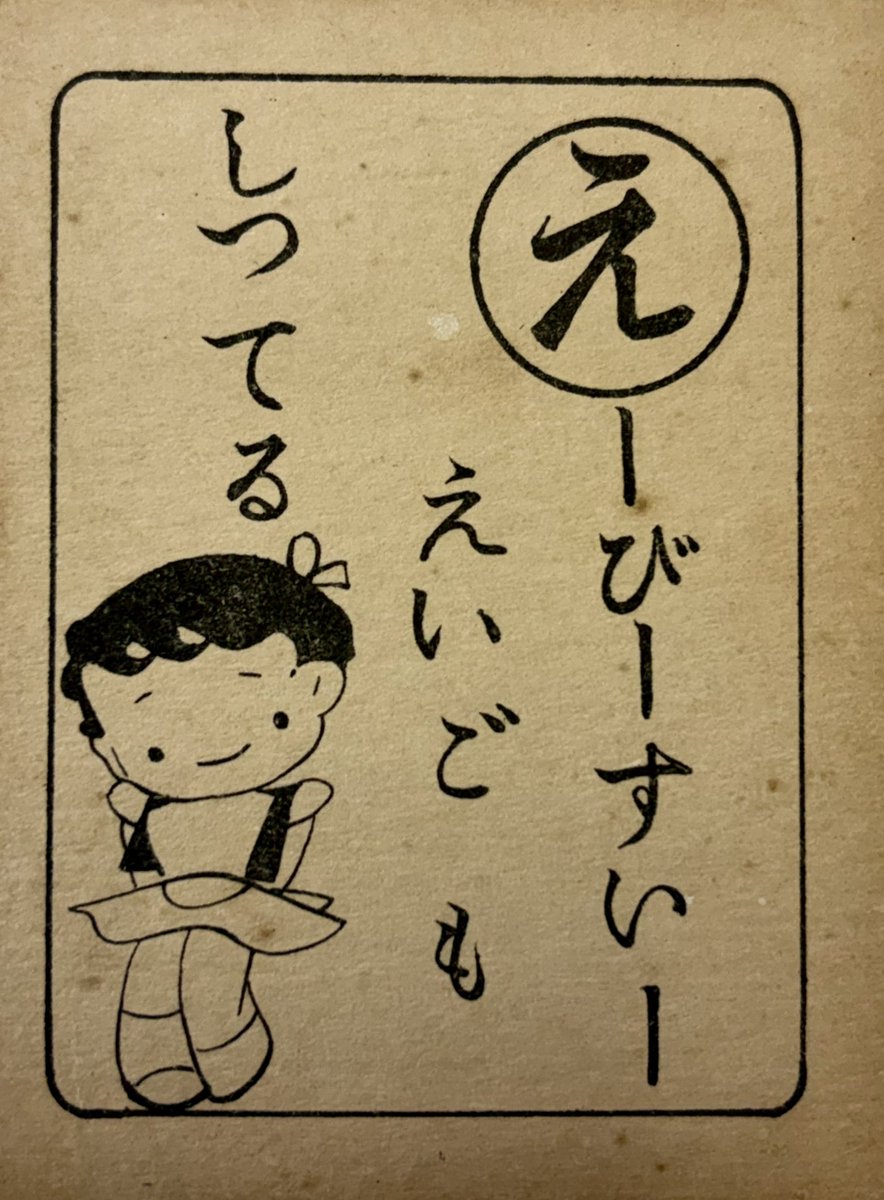 えーびーすいー
えいごも
しつてる